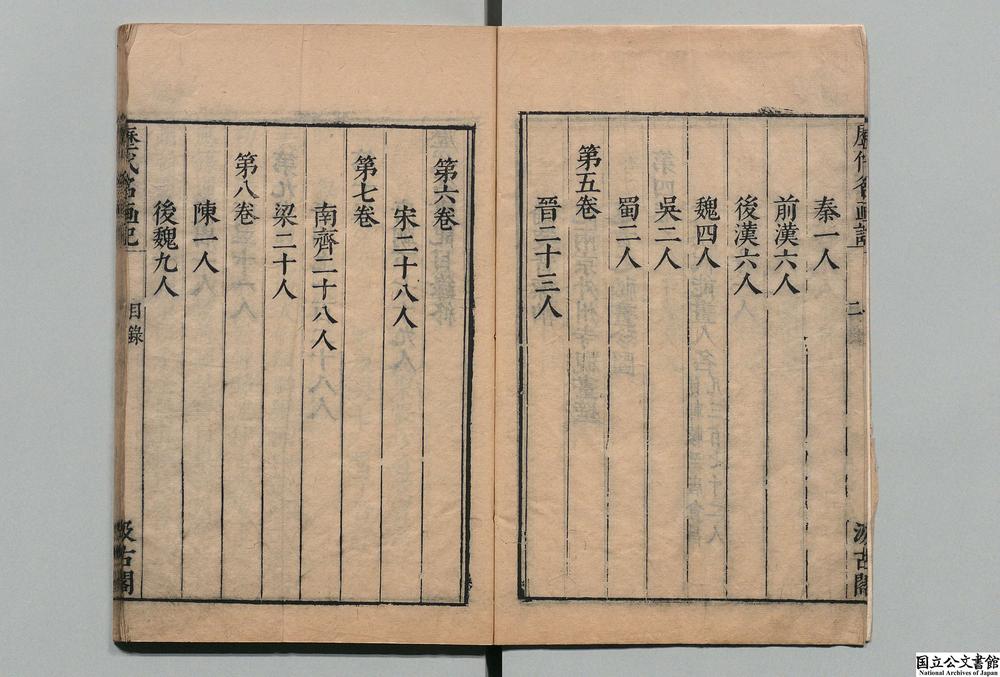 歷代名畫記
二
汲古閣
秦一人
前漢六人
後漢六人
魏四人
吳二人
蜀二人
第五卷
晉二十三人
第六卷
宋二十八人
第七卷
南齊二十八人
梁二十人
第八卷
陳一人
後魏九人
歷代名画記
目錄
汲古閣
国立公文書館
National Archives of Japan